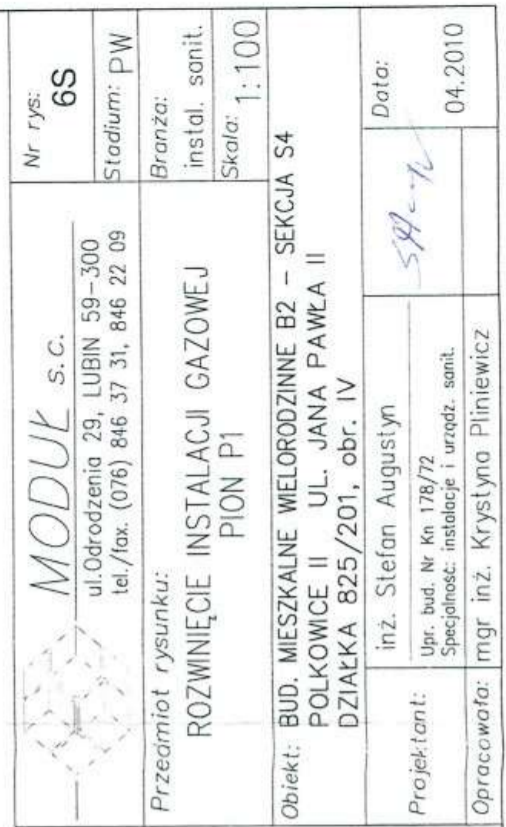 MODUŁ s.c.
ul.Odrodzenia 29, LUBIN 59-300
tel./fax. (076) 846 37 31, 846 22 09
Nr rys:
6S
Stadium: PW
Przedmiot rysunku:
ROZWINIĘCIE INSTALACJI GAZOWEJ
PION P1
Branża:
instal. sanit.
Skala: 1:100
Obiekt: BUD. MIESZKALNE WIELORODZINNE B2 – SEKCJA S4
POLKOWICE II UL. JANA PAWŁA II
DZIAŁKA 825/201, obr. IV
Projektant:
inż. Stefan Augustyn
Upr. bud. Nr Kn 178/72
Specjalność: instalacje i urządz. sanit.
Data:
04.2010
Opracowała: mgr inż. Krystyna Pliniewicz